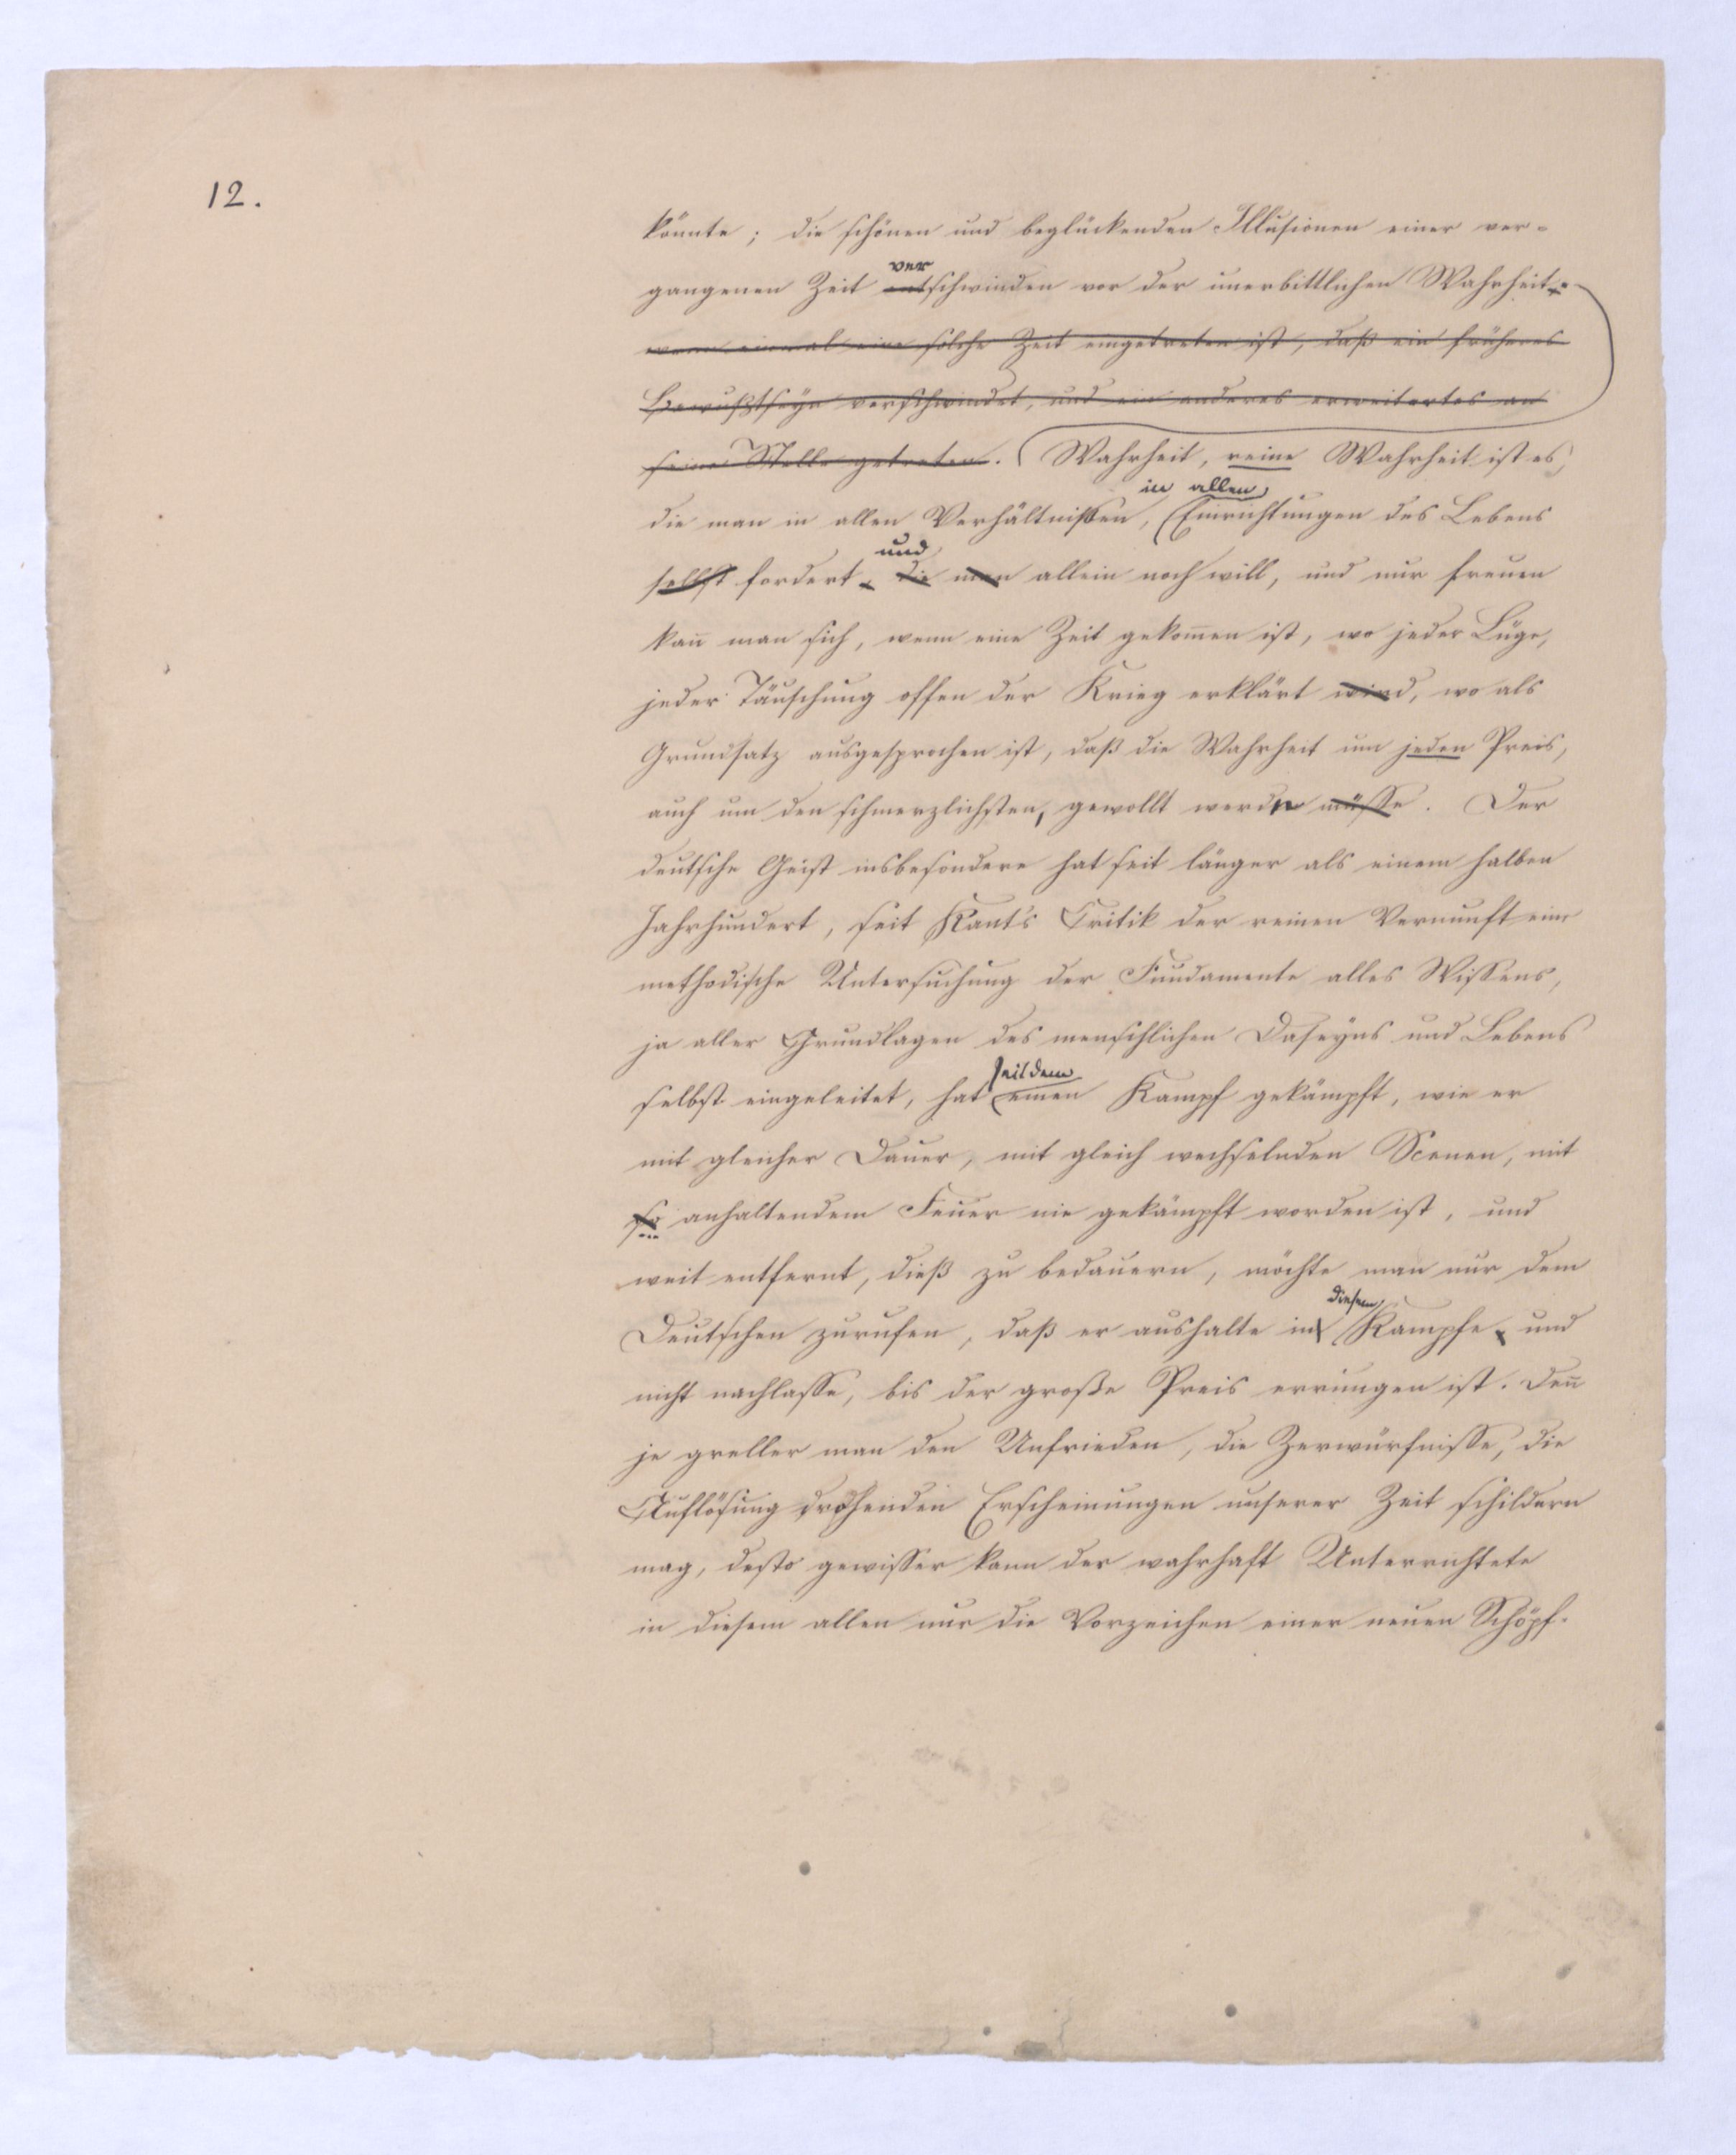 12.
könnte; die schönen und beglückenden Illusionen einer ver-
gangenen Zeit entschwinden vor der unerbittlichen Wahrheit.
ver
wenn einmal eine solche Zeit eingetreten ist, daß ein früheres
Bewußtseyn verschwindet, und ein anderes erweitertes an
seine Stelle getreten. Wahrheit, reine Wahrheit ist es,
in allen
die man in allen Verhältnißen, Einrichtungen des Lebens
und
selbst fordert, die man allein noch will, und nur freuen
kan̄ man sich, wenn eine Zeit gekom̄en ist, wo jeder Lüge,
jeder Täuschung offen der Krieg erklärt wird, wo als
Grundsatz ausgesprochen ist, daß die Wahrheit um jeden Preis,
auch um den schmerzlichsten, gewollt werdn müsse. Der
deutsche Geist insbesondere hat seit länger als einem halben
Jahrhundert, seit Kant's Critik der reinen Vernunft eine
methodische Untersuchung der Fundamente alles Wissens,
ja aller Grundlagen des menschlichen Daseyns und Lebens
seitdem
selbst eingeleitet, hat einen Kampf gekämpft, wie er
mit gleicher Dauer, mit gleich wechselnden Scenen, mit
so anhaltendem Feuer nie gekämpft worden ist, und
weit entfernt, dieß zu bedauern, möchte man nur dem
diesem
Deutschen zurufen, daß er aushalte im Kampfe, und
nicht nachlasse, bis der große Preis errungen ist. Den̄
je greller man den Unfrieden, die Zerwürfnisse, die
Auflösung drohenden Erscheinungen unserer Zeit schildern
mag, desto gewisser kann der wahrhaft Unterrichtete
in diesem allen nur die Vorzeichen einer neuen Schöpf-